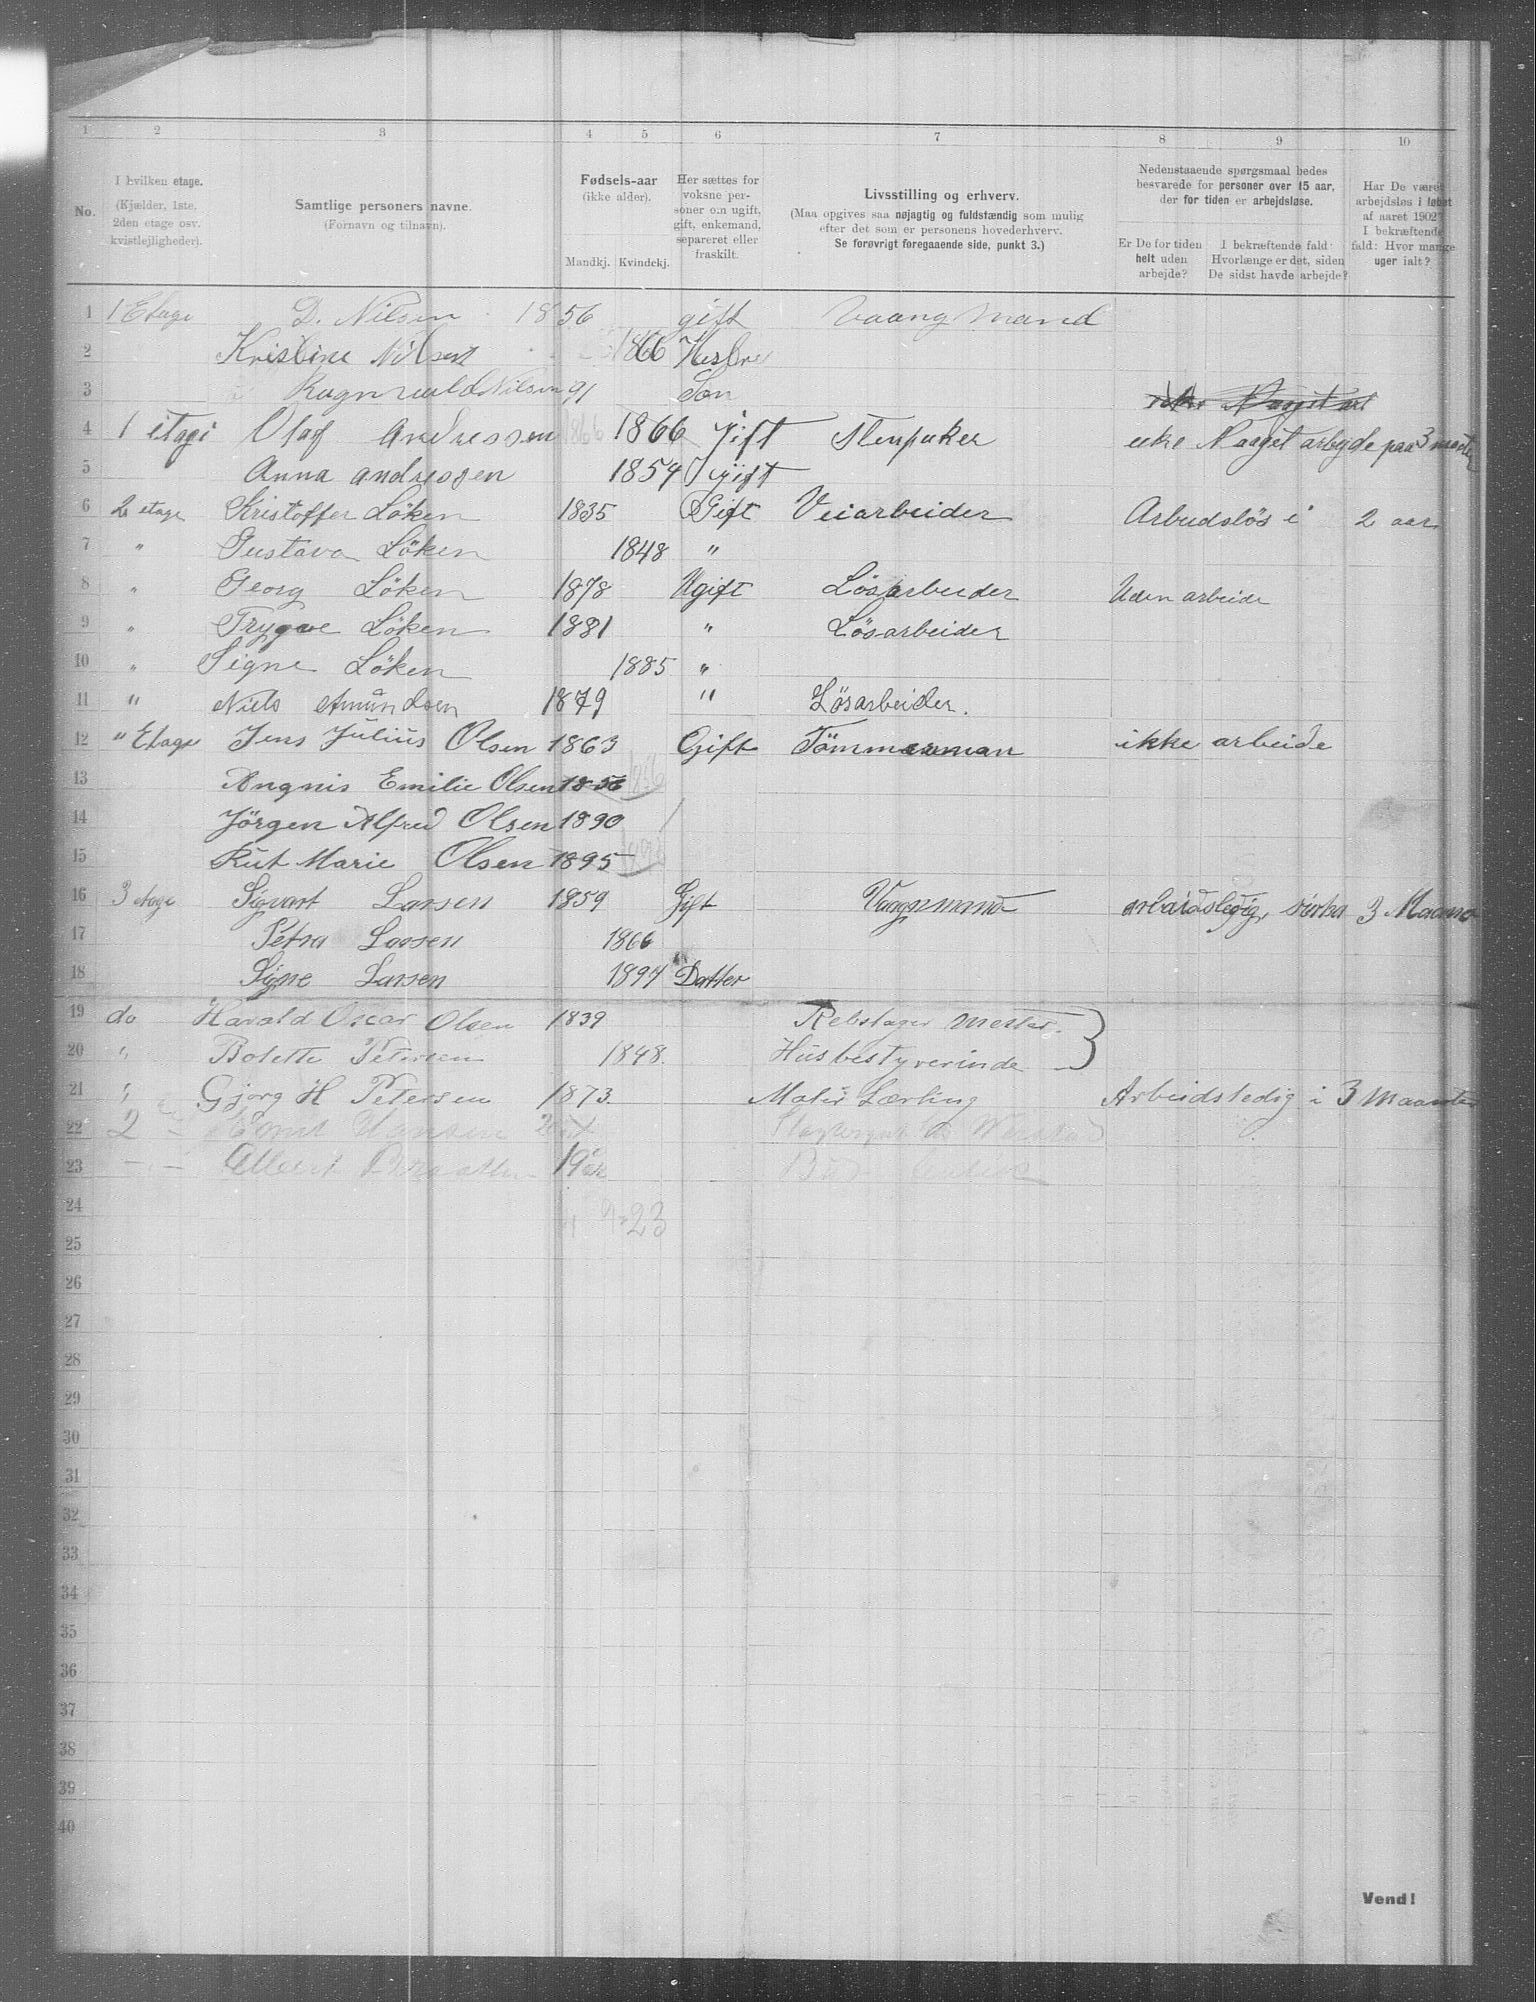 1 2 3 4 5 6 7 8 9 10
No.
I hvilken etage.
(Kjælder, 1ste.
2den etage osv.
kvistlejligheder).
Samtlige personers navne.
(Fornavn og tilnavn).
Fødsels-aar
(ikke alder).
Mandkj. Kvindekj.
Her sættes for
voksne per-
soner om ugift,
gift, enkemand,
separeret eller
fraskilt.
Livsstilling og erhverv.
(Maa opgives saa nøjagtig og fuldstændig som mulig
efter det som er personens hovederhverv.
Se forøvrigt foregaaende side, punkt 3.)
Nedenstaaende spørgsmaal bedes
besvarede for personer over 15 aar,
der for tiden er arbejdsløse.
Er De for tiden
helt uden
arbejde?
I bekræftende fald:
Hvorlænge er det, siden
De sidst havde arbejde?
Har De været
arbejdsløs i løbet
af aaret 1902?
I bekræftende
fald: Hvor mange
uger ialt?
1 1 Etage D. Nilsen 1856 gift Vaang Mand
2 Kristine Nilsen 1866
3 Ragnvald Nilsen 91 Søn
4 1 etage Olaf Andressen 1866 Gift Stenpuker Naaget arbyde paa 3
5 Anna Andressen 1854 Gift
6 2 etage Kristoffer Löken 1835 Gift Veiarbeider Arbudslös i 2 aar
7 " Gustava Löken 1848 "
8 " Georg Löken 1878 Ugift Lösarbeider Uden arbeide
9 " Trygve Löken 1881 " Lösarbeider
10 " Signe Löken 1885 "
11 " Niels Amundsen 1879 " Lösarbeider.
12 " Etage Jens Julius Olsen 1863 Gift Tömmerman ikke arbeide
13 Angnis Emilie Olsen 1856
14 Jörgen Alfred Olsen 1890
15 Rut Marie Olsen 1895
16 3 etage Sigvart Larsen 1859 Gift Vaagnmand arbaidsledig, sirka 3 Maano
17 Petra Larsen 1866
18 Signe Larsen 1897 Datter
19 do Harald Oscar Olsen 1839 Rebslager Mester.
20 " Bolette Petersen 1848. Husbestyrerinde
21 " Gjorg H Petersen 1873. Maler Lærling Arbeidsledig i 3 Maanter
22 2 Hansen
23 Albert 19 aar
24 23
25
26
27
28
29
30
31
32
33
34
35
36
37
38
39
40
Vend!